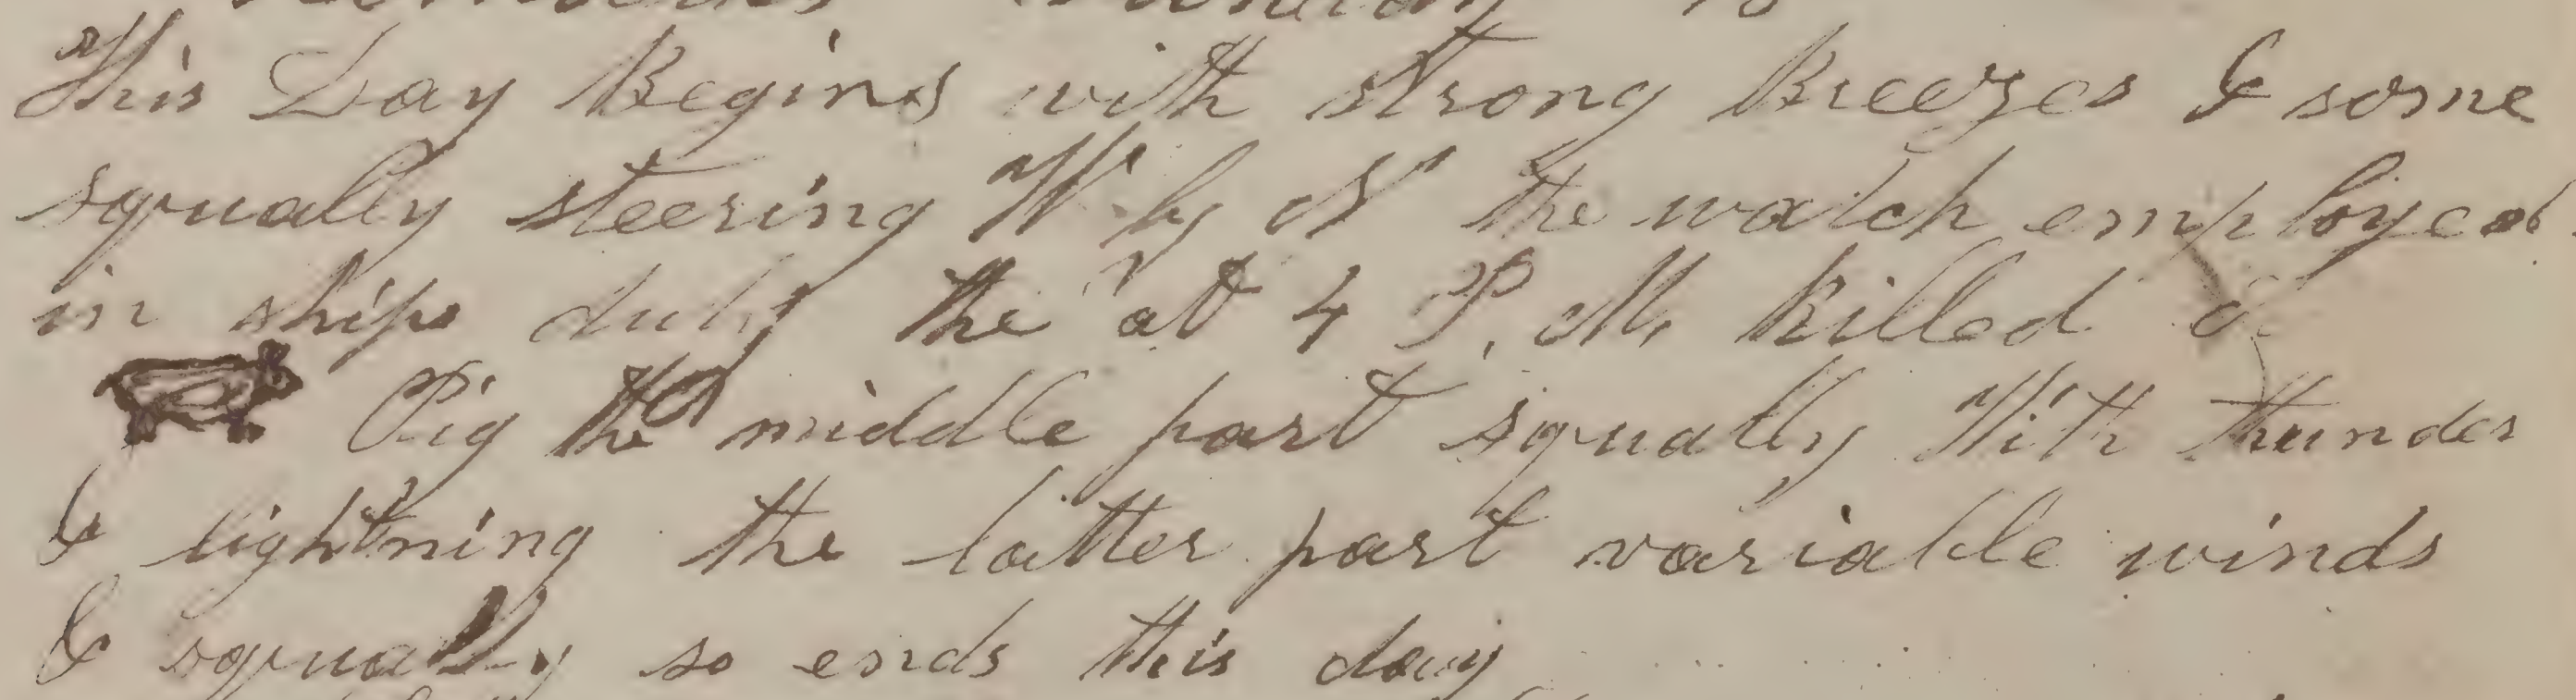 This Day Begins with strong Breezes & some
squally steering W. by N the watch employed
in ships duty the at 4 P. M. killed a
Pig the middle part squally With thunder
& lightning the latter part variable winds
& squally so ends this day